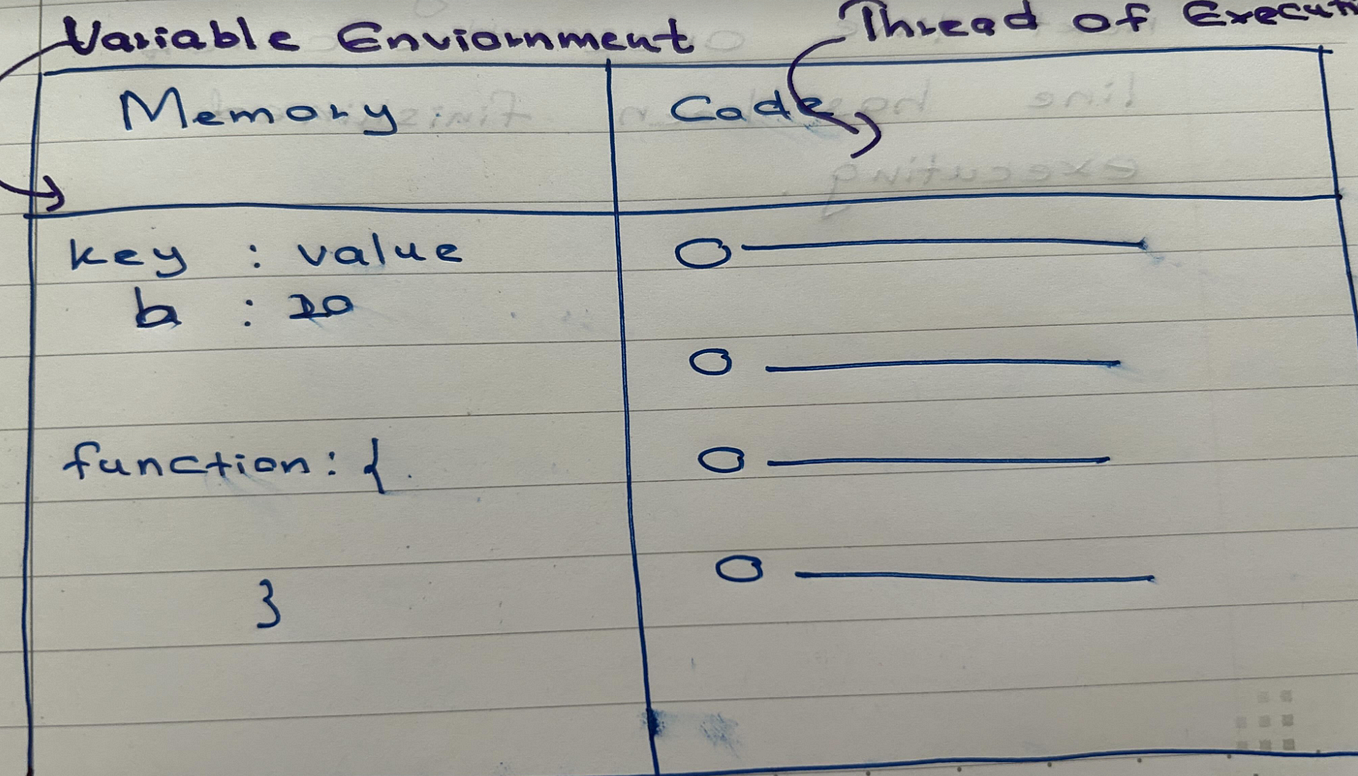 Variable Enviornment
Thread of Executi
Memory
Code
key : value
b : 20
function : {
}